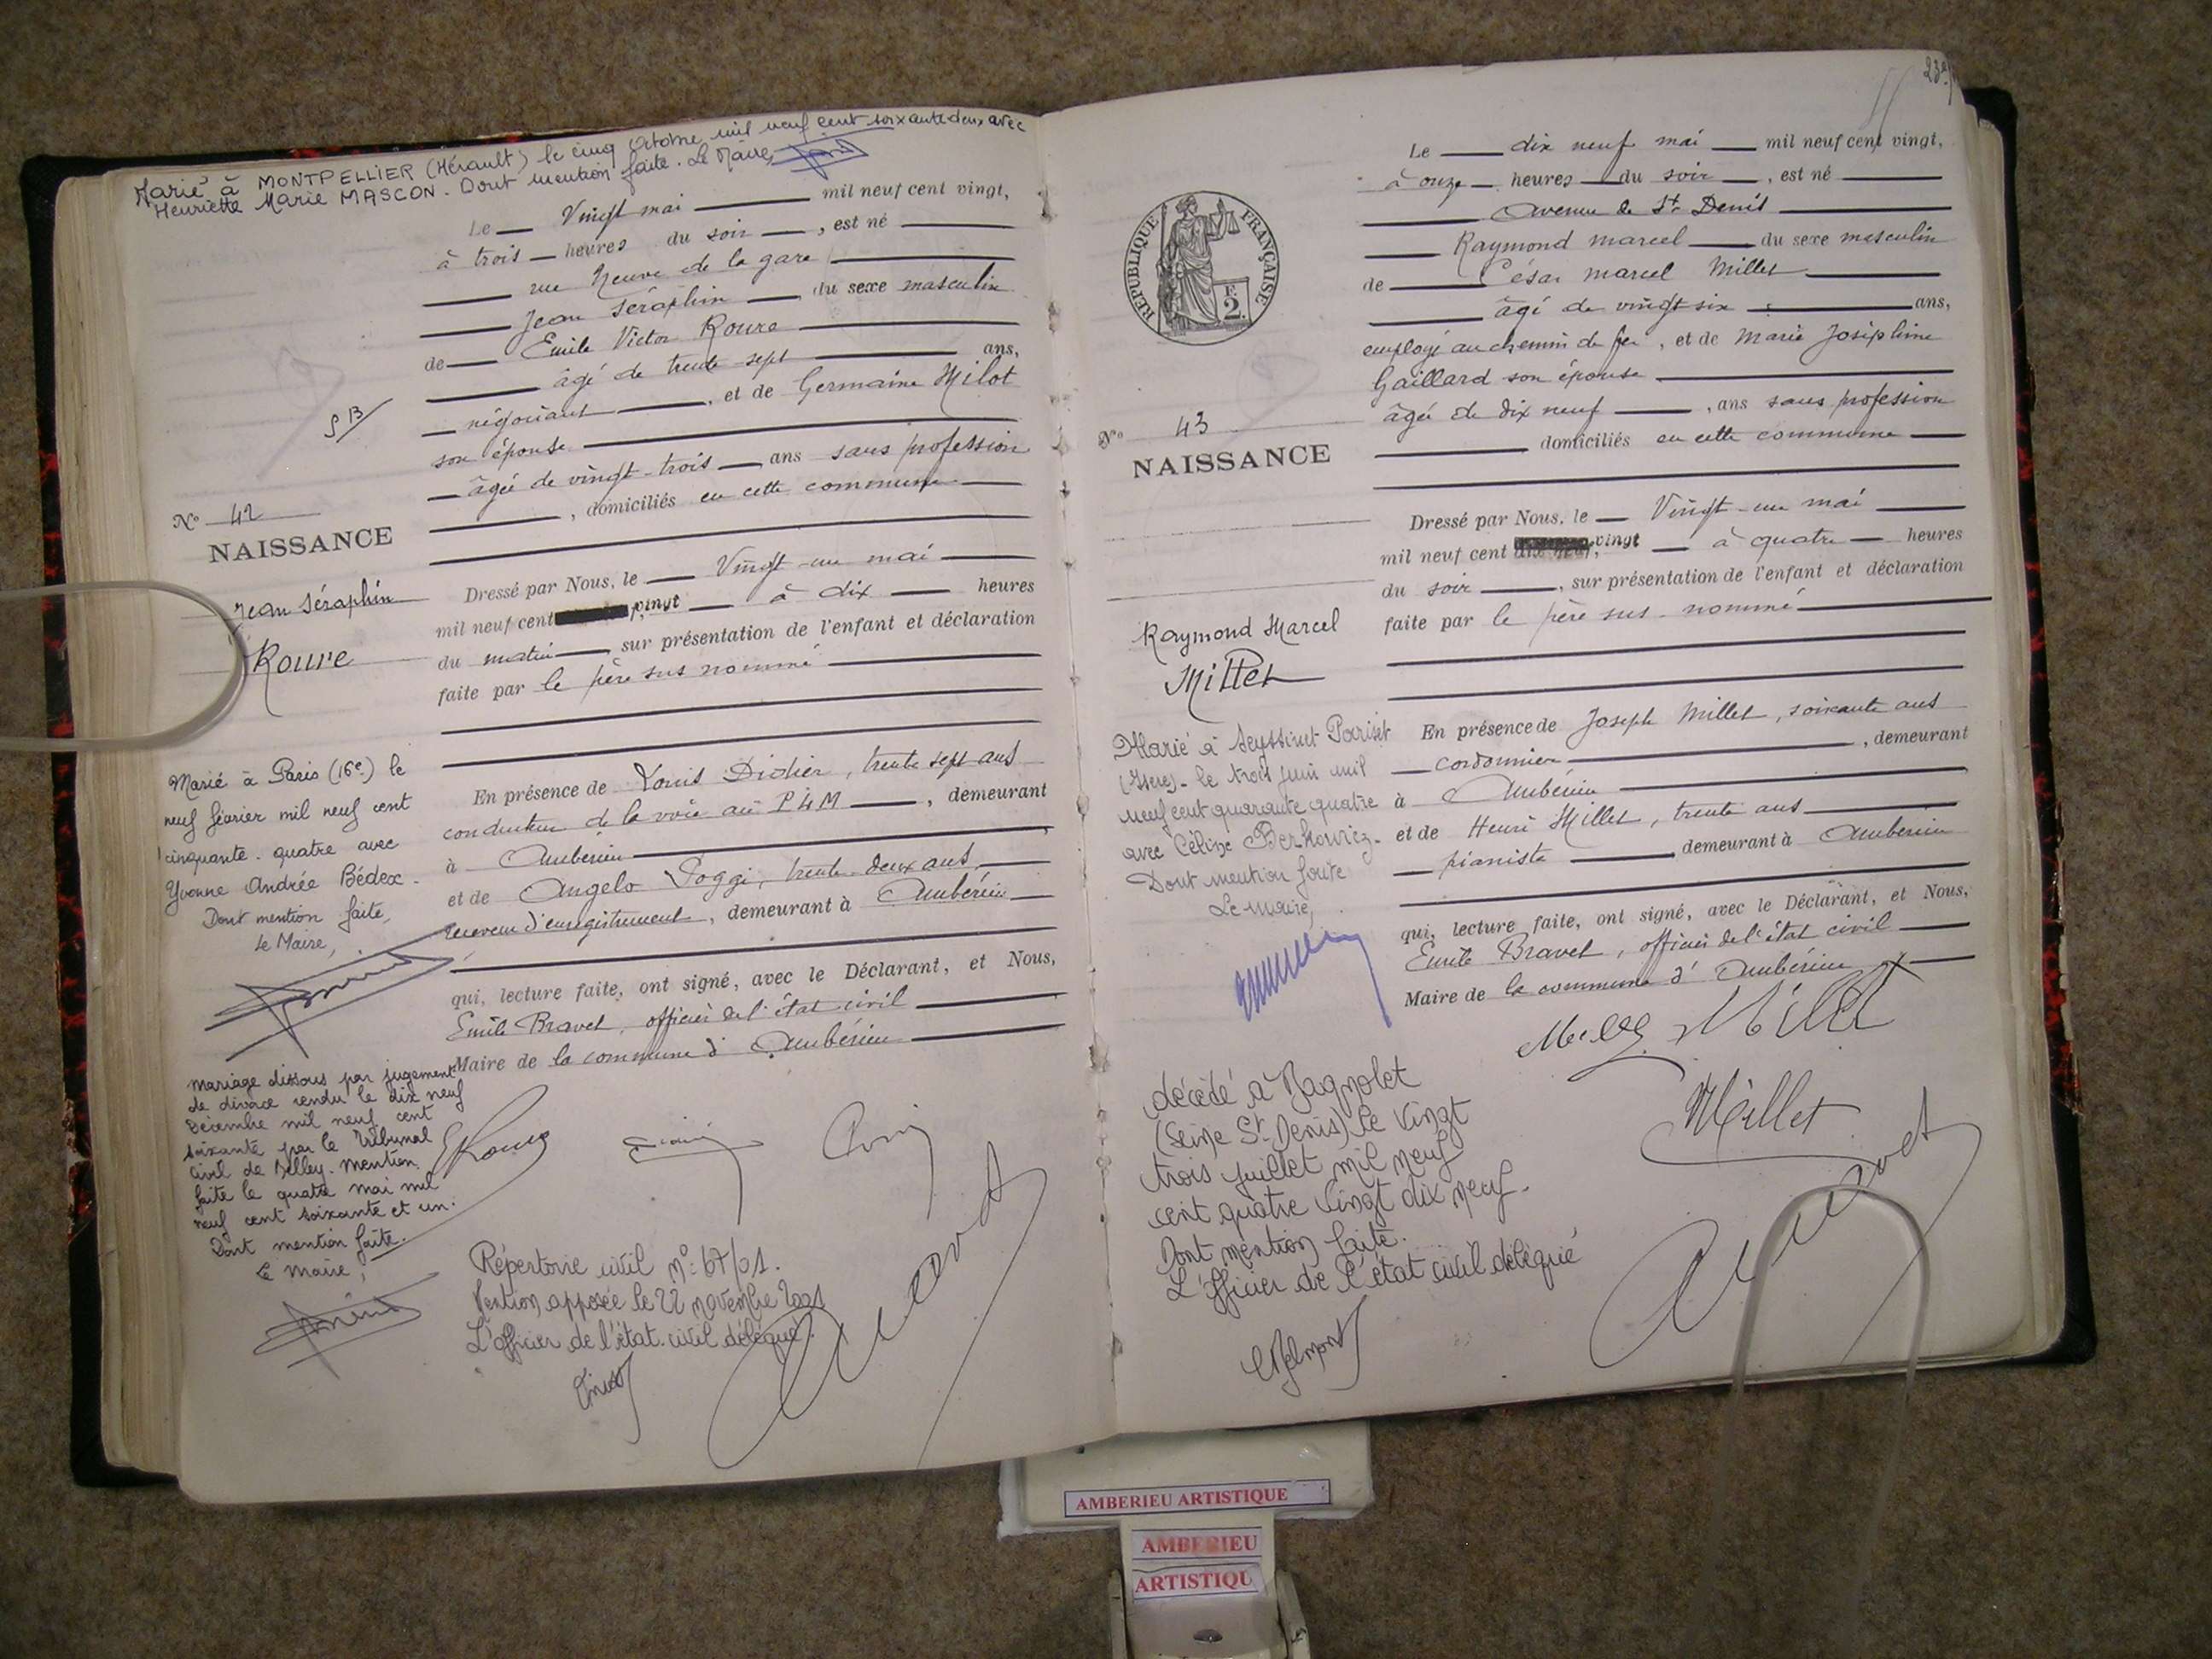 Marié à MONTPELLIER (Hérault) le cinq Octobre mil neuf cent soixante deux avec
Henriette Marie MASCON. Dont mention faite. Le Maire,
Le Vingt mai mil neuf cent vingt,
à trois heures du soir, est né
rue Neuve de la gare
Jean Séraphin, du sexe masculin
de Emile Victor Roure
âgé de trente sept ans,
négociant, et de Germaine Milot
son épouse
âgée de vingt-trois ans sans profession
, domiciliés en cette commune
SB
N° 42
NAISSANCE
Jean Séraphin
Roure
Dressé par Nous, le Vingt-un mai
mil neuf cent vingt à dix heures
du matin, sur présentation de l'enfant et déclaration
faite par le père sus nommé
En présence de Louis Didier, trente sept ans
conducteur de la voie au PLM, demeurant
à Ambérieu
et de Angelo Poggi, trente-deux ans,
receveur d'enregistrement, demeurant à Ambérieu
qui, lecture faite, ont signé, avec le Déclarant, et Nous,
Emile Bravet, officier de l'état civil
Maire de la commune d'Ambérieu
Marié à Paris (16e) le
neuf février mil neuf cent
cinquante-quatre avec
Yvonne Andrée Bédex.
Dont mention faite,
Le Maire,
Mariage dissous par jugement
de divorce rendu le dix neuf
Décembre mil neuf cent
soixante par le Tribunal
Civil de Belley. Mention
faite le quatre mai mil
neuf cent soixante et un.
Dont mention faite.
Le Maire,
ERoure
Répertoire civil n° 67/01.
Mention apposée le 22 novembre 2001
L'officier de l'état civil délégué.
23
Le dix neuf mai mil neuf cent vingt,
à onze heures du soir, est né
Avenue de St Denis
Raymond Marcel du sexe masculin
de César Marcel Millet
âgé de vingt six ans,
employé au chemin de fer, et de Marie Joséphine
Gaillard son épouse
âgée de dix neuf, ans sans profession
domiciliés en cette commune
RÉPUBLIQUE FRANÇAISE
F.
2.
N° 43
NAISSANCE
Raymond Marcel
Millet
Dressé par Nous, le Vingt-un mai
mil neuf cent vingt à quatre heures
du soir, sur présentation de l'enfant et déclaration
faite par le père sus-nommé
En présence de Joseph Millet, soixante ans
cordonnier, demeurant
à Ambérieu
et de Henri Millet, trente ans
pianiste demeurant à Ambérieu
qui, lecture faite, ont signé, avec le Déclarant, et Nous,
Emile Bravet, officier de l'état civil
Maire de la commune d'Ambérieu
Marié à Seyssinet Pariset
(Isère) le trois juin mil
neuf cent quarante quatre
avec Céline Berkoviez.
Dont mention faite
Le Maire,
décédé à Bagnolet
(Seine St Denis) le Vingt
trois juillet mil neuf
cent quatre vingt dix neuf.
Dont mention faite.
L'officier de l'état civil délégué
Millet
Millet
Bravet
AMBERIEU ARTISTIQUE
AMBERIEU
ARTISTIQU